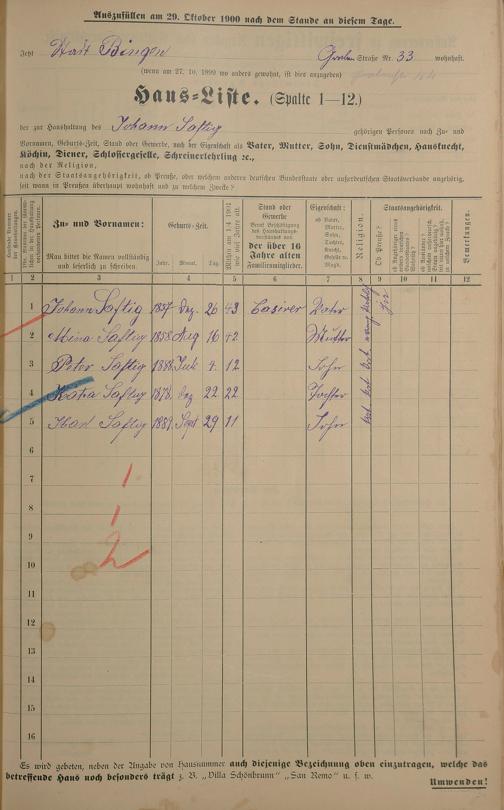 Auszufüllen am 29. Oktober 1900 nach dem Stande an diesem Tage.
Jetzt Stadt Bingen Graben Straße Nr. 33 wohnhaft.
(wenn am 27. 10. 1899 wo anders gewohnt, ist dies anzugeben)
Haus-Liste. (Spalte 1—12.)
der zur Haushaltung des Johann Saftig gehörigen Personen nach Zu- und
Vornamen, Geburts-Zeit, Stand oder Gewerbe, nach der Eigenschaft als Vater, Mutter, Sohn, Dienstmädchen, Hausknecht,
Köchin, Diener, Schlossergeselle, Schreinerlehrling ec.,
nach der Religion,
nach der Staatsangehörigkeit, ob Preuße, oder welchem anderen deutschen Bundesstaate oder außerdeutschen Staatsverbande angehörig,
seit wann in Preußen überhaupt wohnhaft und zu welchem Zwecke?
Zu- und Vornamen:
Man bittet die Namen vollständig und leserlich zu schreiben.
Geburts-Zeit.
Jahr. Monat. Tag.
Stand oder Gewerbe
der über 16 Jahre alten Familienmitglieder.
Eigenschaft:
ob Vater, Mutter, Sohn, Tochter, Knecht, Geselle u. Magd.
Religion.
Staatsangehörigkeit.
Ob Preuße?
Bemerkungen.
1 2 3 4 5 6 7 8 9 10 11 12
1 Johann Saftig 1857 Dez. 26 43 Casirer Vater
2 Mina Saftig 1858 Aug 16 42 Mutter
3 Peter Saftig 1888 Juli 4. 12 Sohn
4 Saftig 1878 Dez 22 22 Tochter
5 Saftig 1889 Sept 29 11 Sohn
6
7
8
9
10
11
12
13
14
15
16
1
1
2
Es wird gebeten, neben der Angabe von Hausnummer auch diejenige Bezeichnung oben einzutragen, welche das
betreffende Haus noch besonders trägt z. B. „Villa Schönbrunn" „San Remo" u. s. w.
Umwenden!